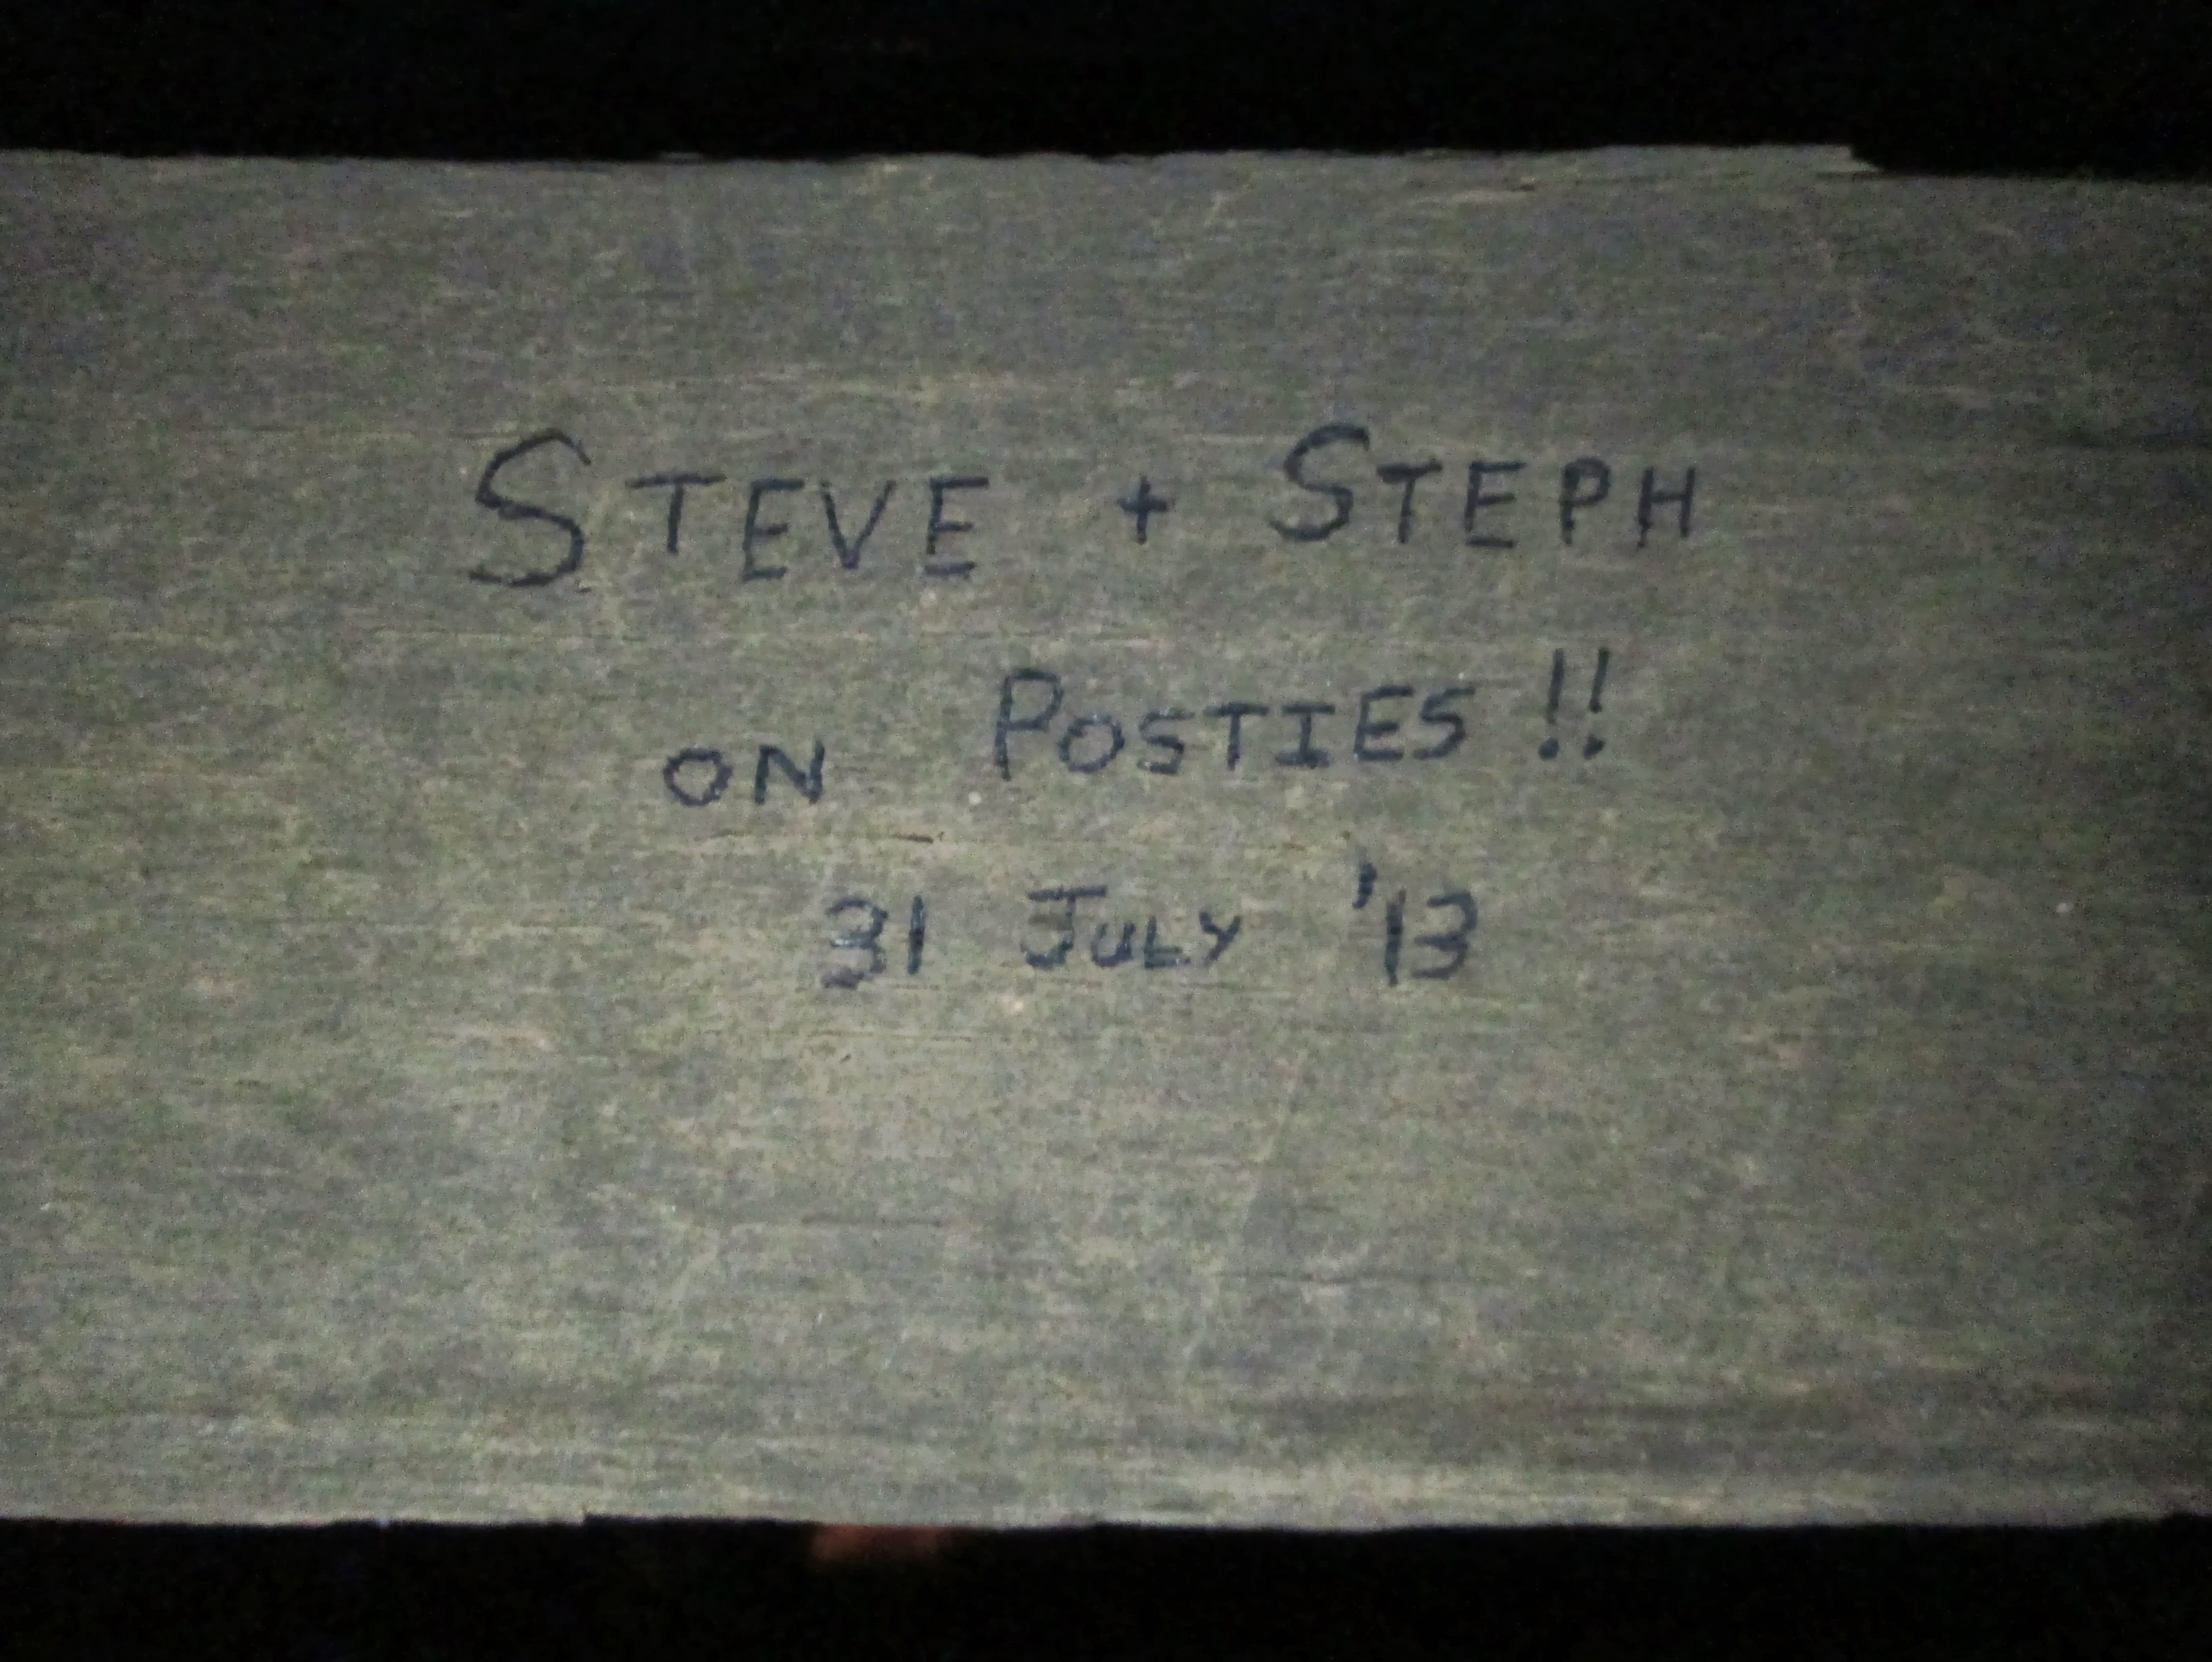 STEVE + STEPH
ON POSTIES!!
31 JULY '13